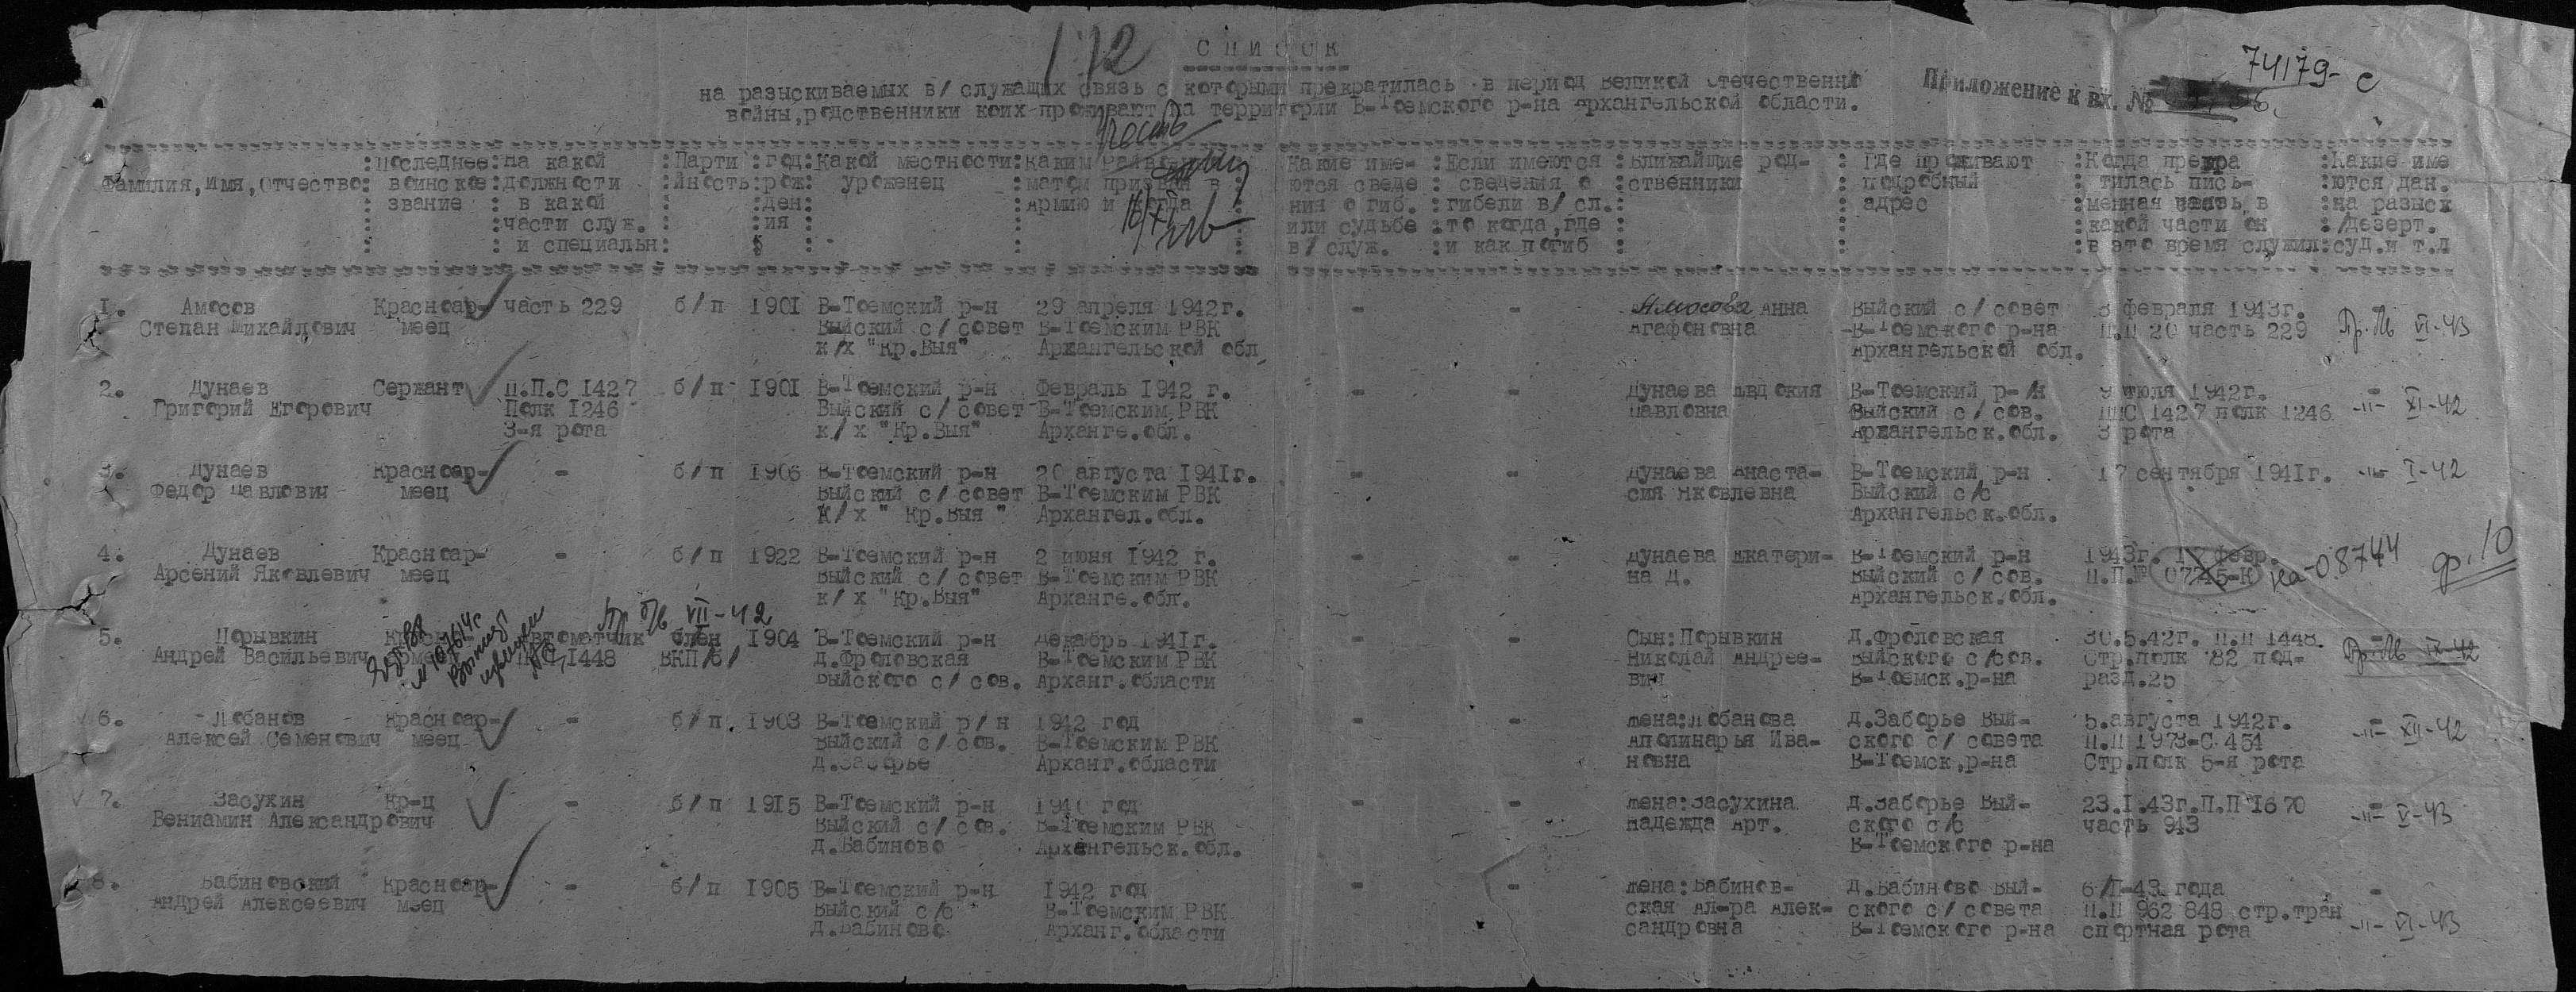 1.12
СПИСОК
74179-с
Приложение к вх. №
на разыскиваемых в/служащих связь с которыми прекратилась в период Великой Отечественной
войны, родственники коих проживают на территории В-Тоемского р-на Архангельской области.
Фамилия, имя, отчество : последнее воинское звание : на какой должности в какой части служ. и специальн : Парти йность : год рож ден ия : Какой местности уроженец : Каким Райвоен матом призван в армию и когда : Какие име- ются сведе ния о гиб. или судьбе в/служ. : Если имеются сведения о гибели в/сл. то когда, где и как погиб : Ближайшие род- ственники : Где проживают подробный адрес : Когда прекра тилась пись- менная связь, в какой части он в это время служил : Какие име ются дан. на разыск /дезерт. суд. и т.д
1. Амосов Красноар- часть 229 б/п 1901 В-Тоемский р-н 29 апреля 1942г. - - Амосова Анна Выйский с/совет 8 февраля 1943г. -
Степан Михайлович меец Выйский с/совет В-Тоемским РВК Агафоновна В-Тоемского р-на П.П 20 часть 229 Пр. б/в VI-43
к/х "Кр.Выя" Архангельской обл Архангельской обл.
2. Дунаев Сержант П.П.С 1427 б/п 1901 В-Тоемский р-н Февраль 1942 г. - - Дунаева Авдокия В-Тоемский р-/н 9 июля 1942г. -
Григорий Егорович Полк 1246 Выйский с/совет В-Тоемским РВК Павловна Выйский с/сов. ППС 1427 полк 1246 -"- XI-42
3-я рота к/х "Кр.Выя" Арханге.обл. Архангельск.обл. 3 рота
3. Дунаев Красноар- - б/п 1906 В-Тоемский р-н 20 августа 1941г. - - Дунаева Анаста- В-Тоемский р-н 17 сентября 1941г. -"- I-42
Федор Павлович меец Выйский с/совет В-Тоемским РВК сия Яковлевна Выйский с/с
К/х " Кр.Выя " Архангел.обл. Архангельск.обл.
4. Дунаев Красноар- - б/п 1922 В-Тоемский р-н 2 июня 1942 г. - - Дунаева Екатери- В-Тоемский р-н 1943г. 17 февр. ф.10
Арсений Яковлевич меец Выйский с/совет В-Тоемским РВК на Д. Выйский с/сов. П.П.№ 07245-К на-08744
к/х "Кр.Выя" Арханге.обл. Архангельск.обл.
Пр б/в VII-42
5. Порывкин автоматчик член 1904 В-Тоемский р-н декабрь 1941г. - - Сын:Порывкин Д.Фроловская 30.5.42г. П.П 1448. -
Андрей Васильевич 1448 ВКП/б/ д.Фроловская В-Тоемским РВК Николай Андрее- Выйского с/сов. Стр.полк 82 под- Пр. б/в IX-42
Выйского с/сов. Арханг.области вич В-Тоемск.р-на разд.25
6. Лобанов Красноар- - б/п. 1903 В-Тоемский р/н 1942 год - - жена:Лобанова Д.Заборье Вый- 5.августа 1942г. -
Алексей Семенович меец Выйский с/сов. В-Тоемским РВК Аполинарья Ива- ского с/совета П.П 1973-С 454 -"- XII-42
д.Заборье Арханг.области новна В-Тоемск,р-на Стр.полк 5-я рота
7. Засухин Кр-ц - б/п 1915 В-Тоемский р-н 1940 год - - жена:Засухина Д.Заборье Вый- 23.I.43г.П.П 1670 -
Вениамин Александрович Выйский с/сов. В-Тоемским РВК Надежда Арт. ского с/с часть 943 -"- V-43
д.Бабиново Архангельск.обл. В-Тоемского р-на
8. Бабиновский Красноар- - б/п 1905 В-Тоемский р-н 1942 год - - жена:Бабинов- Д.Бабиново Вый- 6/I-43 года -
Андрей Алексеевич меец Выйский с/с В-Тоемским РВК ская Ал-ра Алек- ского с/совета П.П 962 848 стр.тран
Д.Бабиново Арханг.области сандровна В-Тоемского р-на спортная рота -"- VI-43